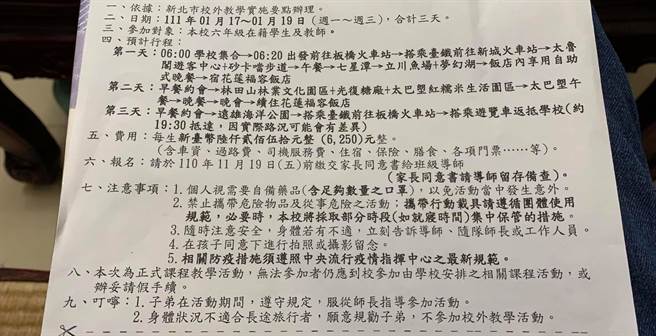 一、依據：新北市校外教學實施要點辦理。
二、日期：111 年 01 月 17～01 月 19 日（週一～週三），合計三天。
三、參加對象：本校六年級在籍學生及教師。
四、預計行程：
第一天：06:00 學校集合→06:20 出發前往板橋火車站→搭乘臺鐵前往新城火車站→太魯
閣遊客中心+砂卡噹步道→午餐→七星潭→立川魚場+夢幻湖→飯店內享用自助
式晚餐→宿花蓮福容飯店
第二天：早餐約會→林田山林業文化園區+光復糖廠+太巴塱紅糯米生活園區→太巴塱午
餐→晚餐→晚會→續住花蓮福容飯店
第三天：早餐約會→遠雄海洋公園→搭乘臺鐵前往板橋火車站→搭乘遊覽車返抵學校(約
19:30 抵達，因實際路況可能會有差異)
五、費用：每生新臺幣陸仟貳佰伍拾元整（6,250)元整。
(含車資、過路費、司機服務費、住宿、保險、膳食、各項門票……等)。
六、報名：請於 110 年 11 月 19 日(五)前繳交家長同意書給班級導師
(家長同意書請導師留存備查)。
七、注意事項：1.個人視需要自備藥品(含足夠數量之口罩)，以免活動當中發生意外。
2.禁止攜帶危險物品及從事危險之活動；攜帶行動載具請遵循團體使用
規範，必要時，本校將採取部分時段(如就寢時間)集中保管的措施。
3.隨時注意安全，身體若有不適，立刻告訴導師、隨隊師長或工作人員。
4.在孩子同意下進行拍照或攝影留念。
5.相關防疫措施須遵照中央流行疫情指揮中心之最新規範。
八、本次為正式課程教學活動，無法參加者仍應到校參加由學校安排之相關課程活動，或
辦妥請假手續。
九、叮嚀：1.子弟在活動期間，遵守規定，服從師長指導參加活動。
2.身體狀況不適合長途旅行者，願意規勸子弟，不參加校外教學活動。